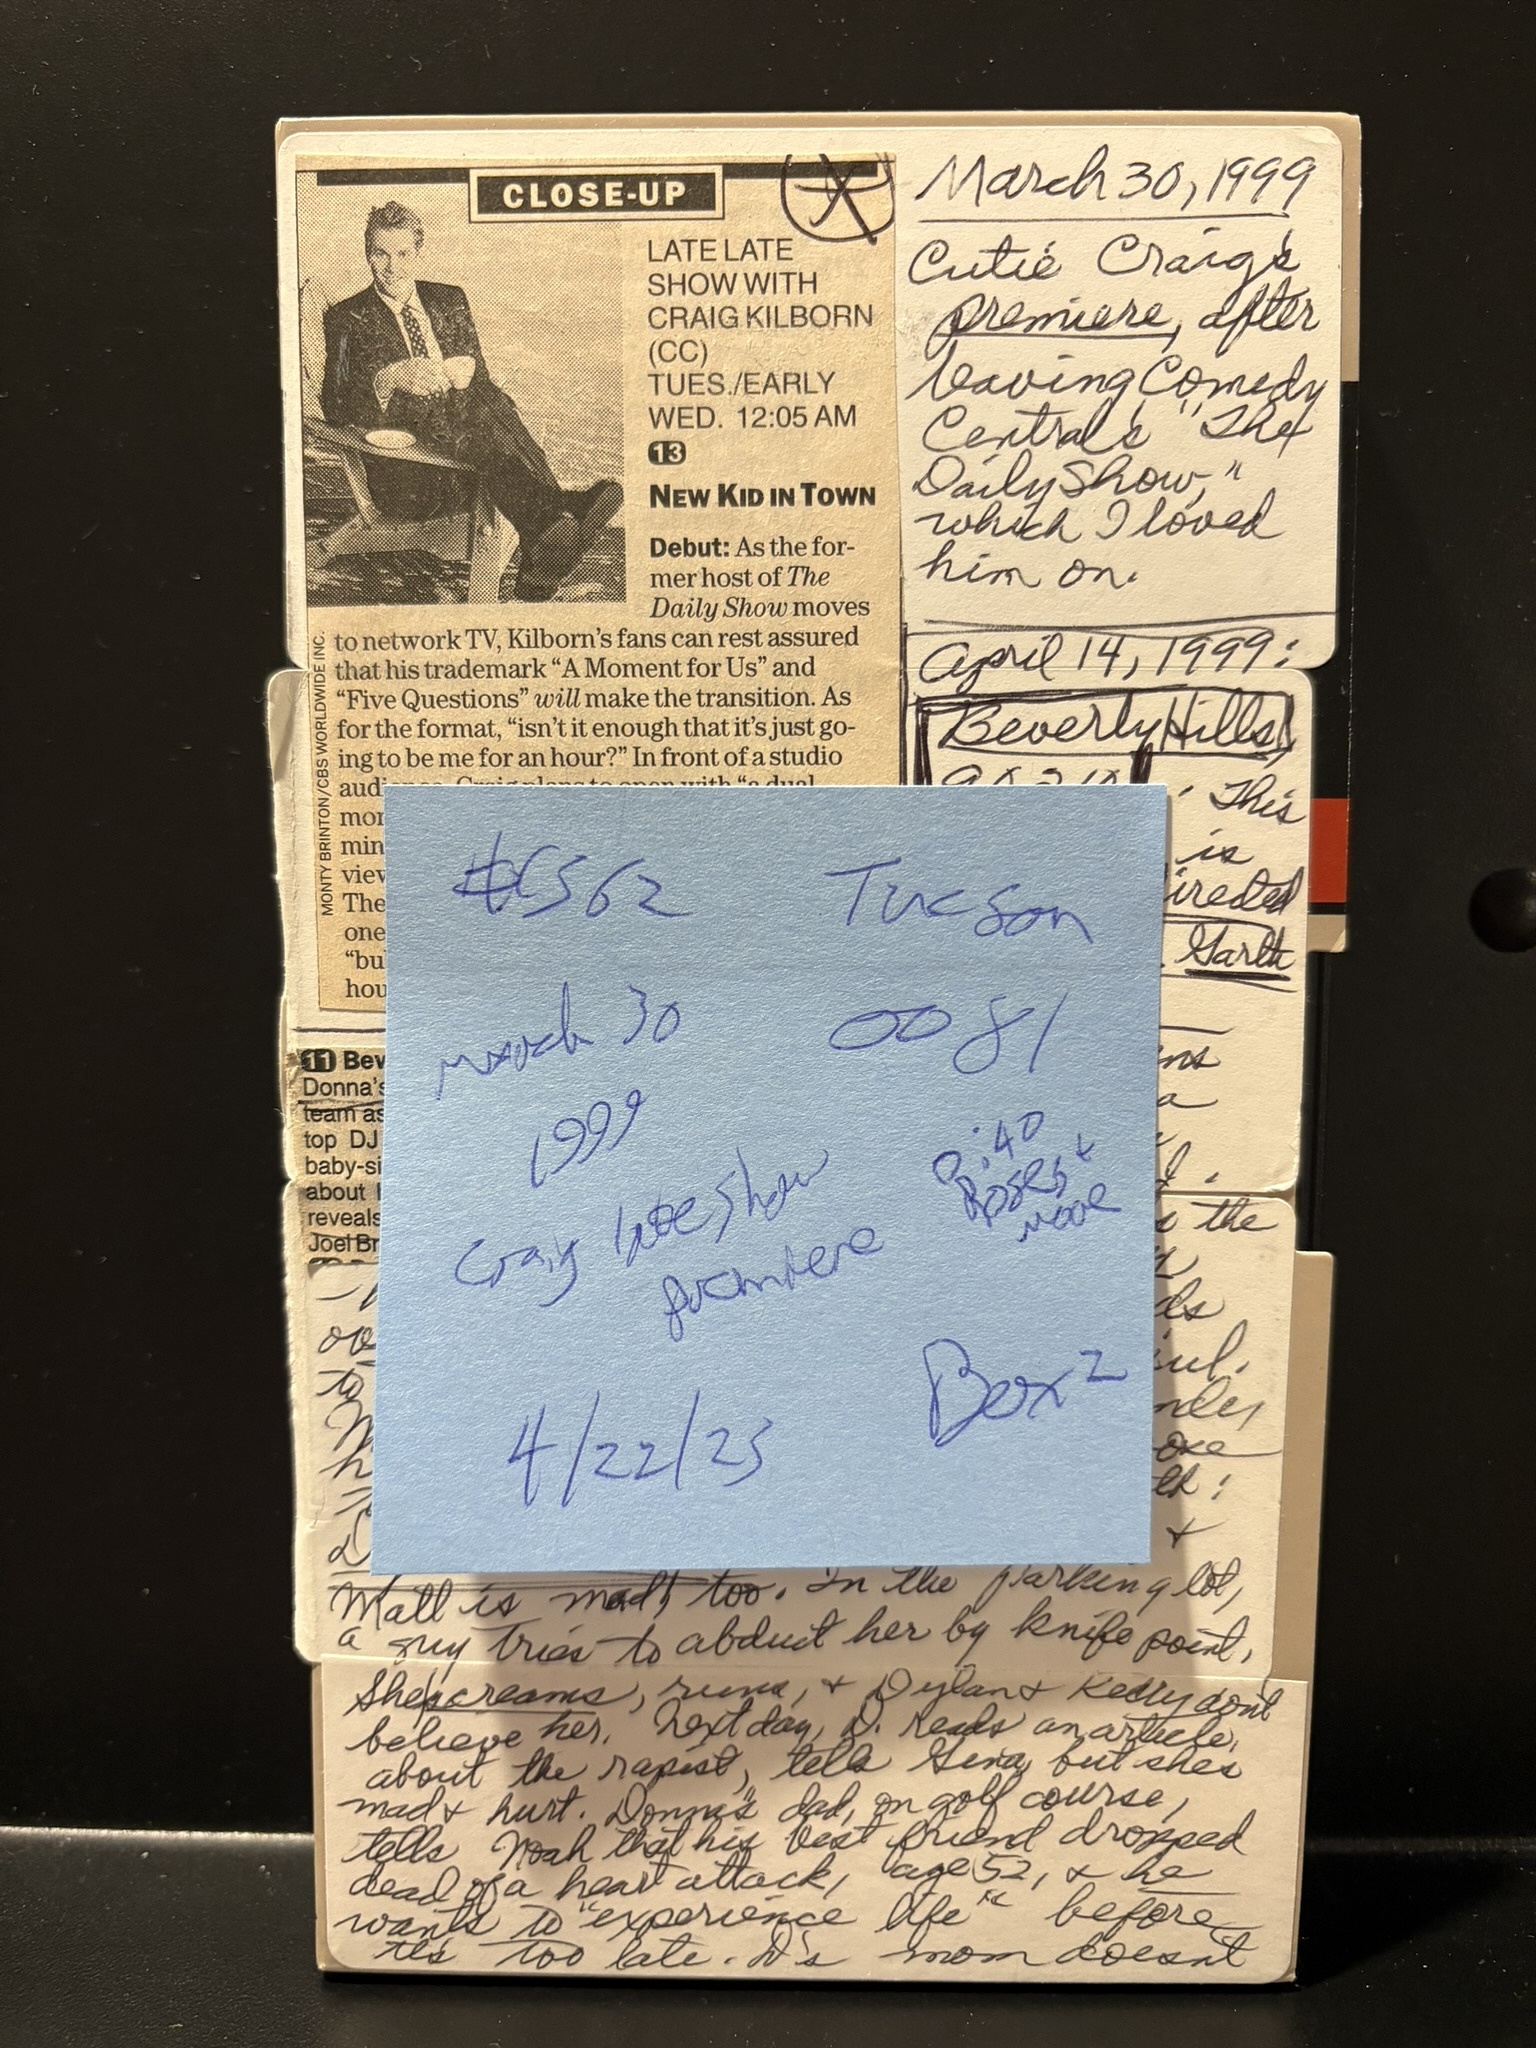 CLOSE-UP
LATE LATE
SHOW WITH
CRAIG KILBORN
(CC)
TUES./EARLY
WED. 12:05 AM
13
NEW KID IN TOWN
Debut: As the for-
mer host of The
Daily Show moves
to network TV, Kilborn's fans can rest assured
that his trademark "A Moment for Us" and
"Five Questions" will make the transition. As
for the format, "isn't it enough that it's just go-
ing to be me for an hour?" In front of a studio
audience, Craig plans to open with "a dual
mon
min
view
The
one
"bu
hou
MONTY BRINTON/CBS WORLDWIDE INC.
March 30, 1999
Cutie Craig's
premiere, after
leaving Comedy
Central's "The
Daily Show,"
which I loved
him on.
April 14, 1999:
Beverly Hills,
90210. This
is
directed
Garth
11 Bev
Donna's
team as
top DJ
baby-si
about
reveals
Joel Br
#6562 Tucson
March 30 0081
1999
0:40
Roses +
more
Craig late show
premiere
4/22/23 Box 2
the
Matt is mad, too. In the parking lot,
a guy tries to abduct her by knife point.
She screams, runs, + Dylan + Kelly don't
believe her. Next day, D. reads an article,
about the rapist, tells Gina, but she's
mad + hurt. Donna's dad, on golf course,
tells Noah that his best friend dropped
dead of a heart attack, age 52, + he
wants to "experience life" before
it's too late. D's mom doesn't